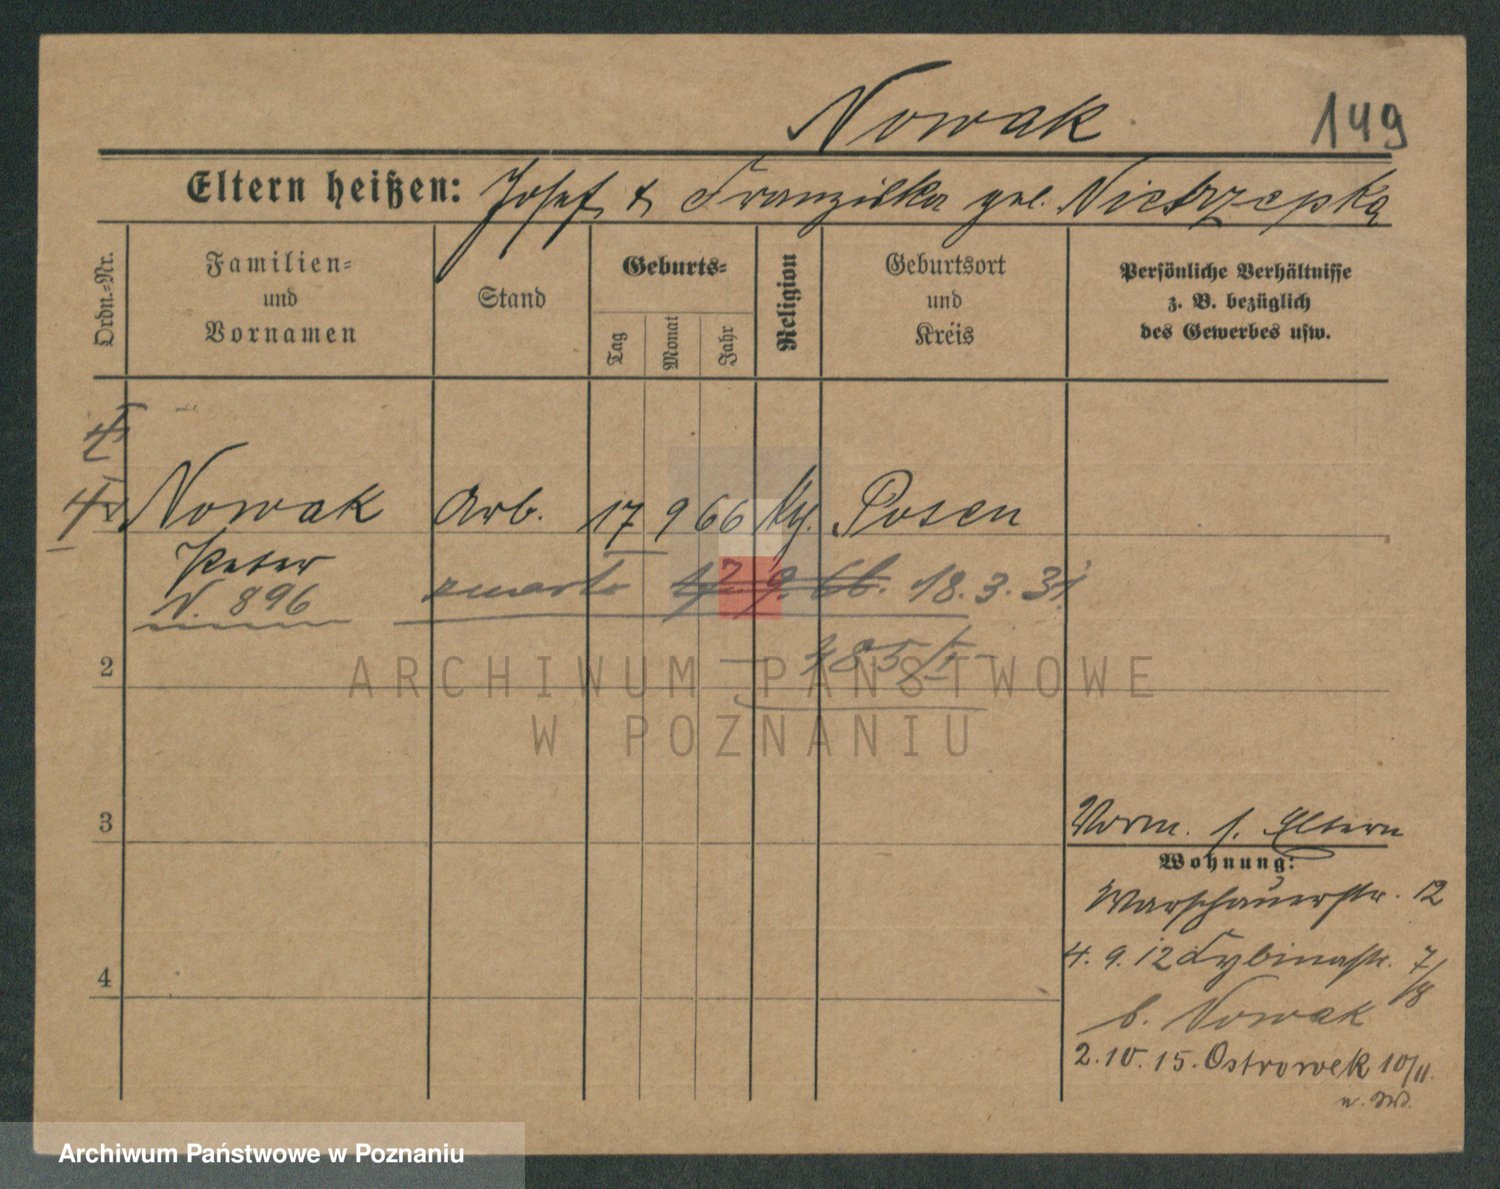 Nowak
149
Eltern heißen: Josef & Franziska geb. Nietrzepka
Ordn.-Nr.
Familien-
und
Vornamen
Stand
Geburts-
Tag
Monat
Jahr
Religion
Geburtsort
und
Kreis
Persönliche Verhältnisse
z. B. bezüglich
des Gewerbes usw.
Nowak Arb. 17 9 66 Posen
Peter
N. 896
17 9. 66. 18. 3. 31
2
3
4
ARCHIWUM PAŃSTWOWE
W POZNANIU
Vorm. s. Eltern
Wohnung:
Warschauerstr. 12
4. 9. 12 Cybinastr. 7/8
b. Nowak
2. 10. 15. Ostrowek 10/11.
Archiwum Państwowe w Poznaniu